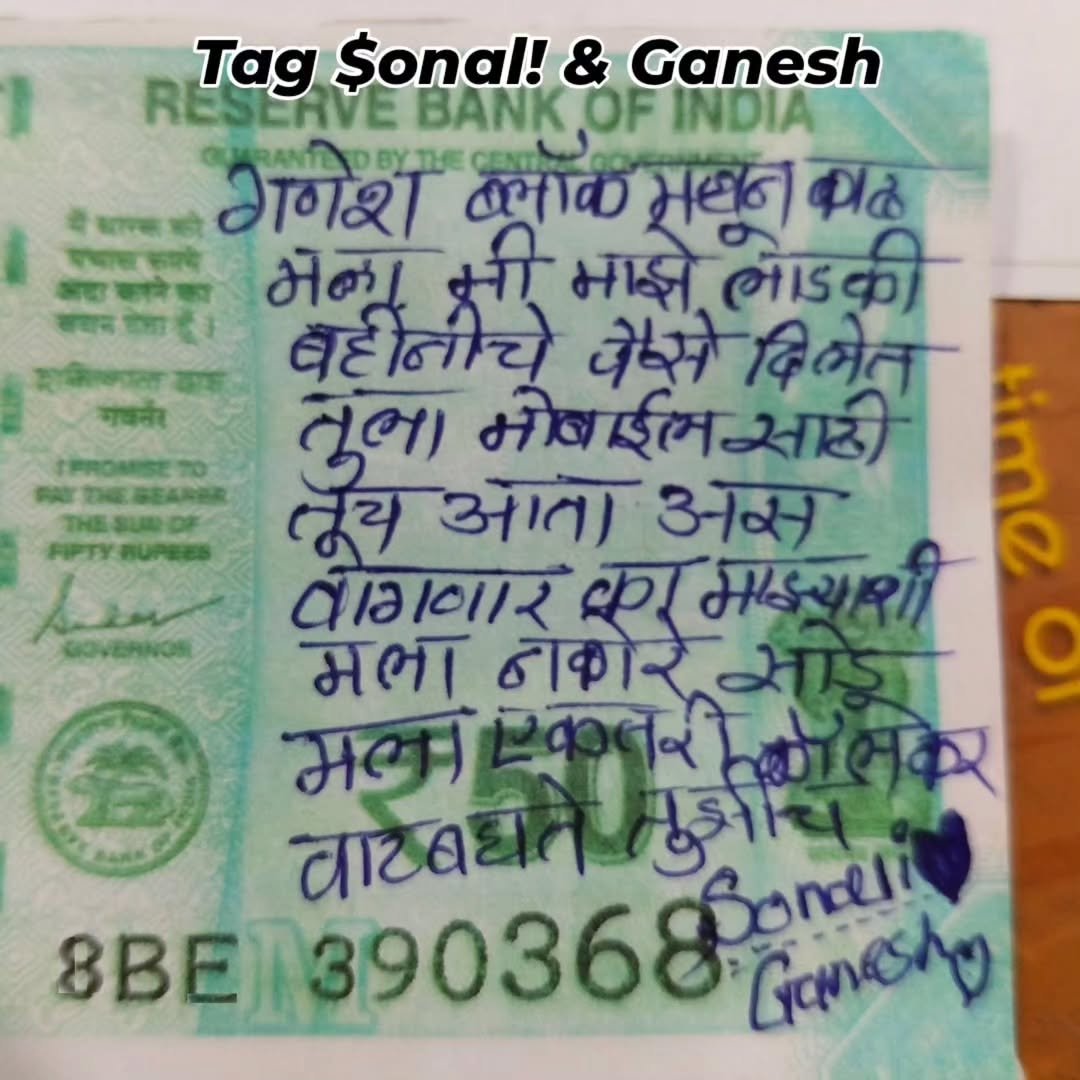 Tag $onal! & Ganesh
RESERVE BANK OF INDIA
GUARANTEED BY THE CENTRAL GOVERNMENT
गणेश ब्लॉक मधून काढ
मला मी माझे लाडकी
बहीनीचे पैसे दिलेत
तुला मोबाईल साठी
तूच आता अस
वागणार का माझ्याशी
मला नाकोरे सोडू
मला एकतरी कॉलकर
वाटबघते तुझीच
Sonali
Ganesh
मैं धारक को
पचास रुपये
अदा करने का
वचन देता हूँ।
गवर्नर
I PROMISE TO
PAY THE BEARER
THE SUM OF
FIFTY RUPEES
GOVERNOR
₹50
8BE 390368
M
time of